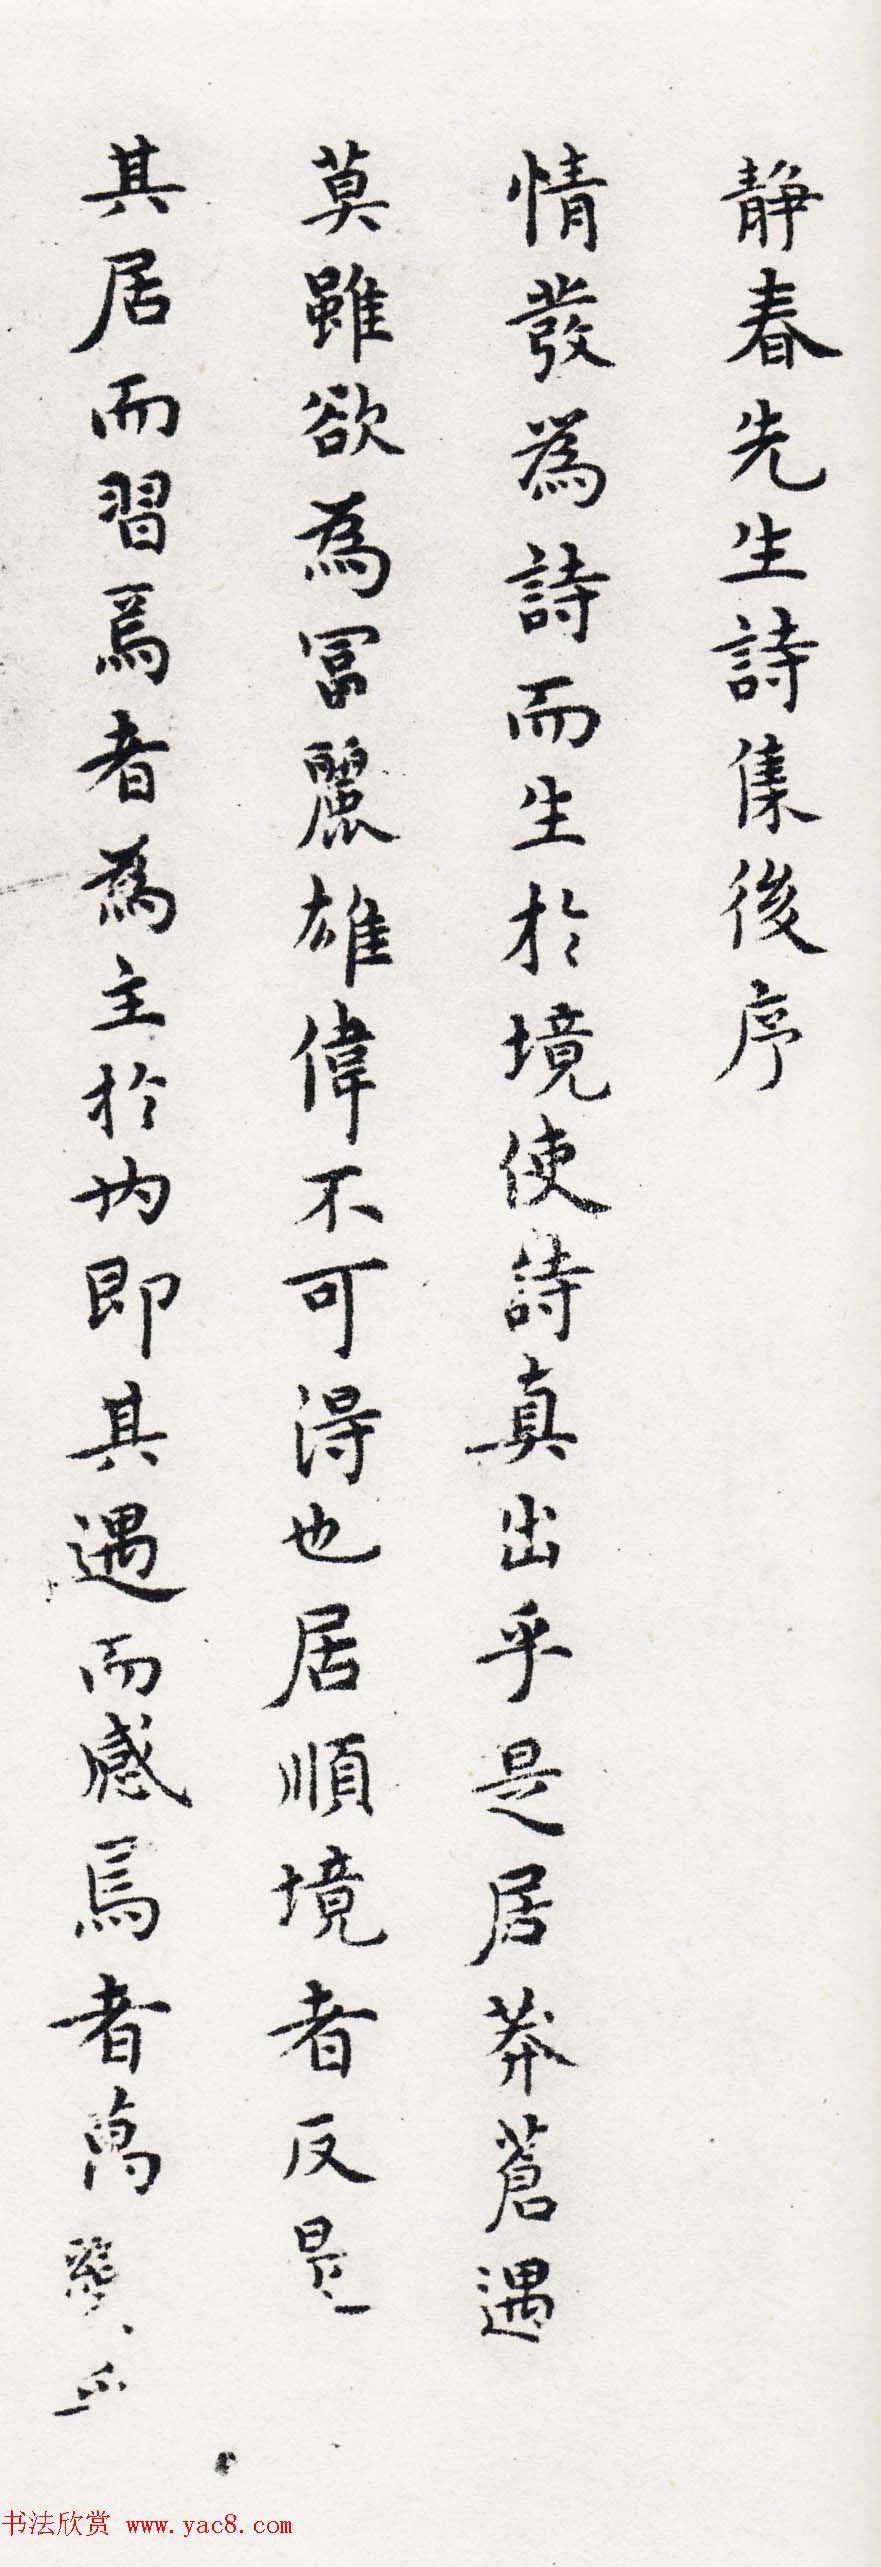 静春先生詩集後序
情發為詩而生於境使詩真出乎是居莽蒼遇
莫雖欲為冨麗雄偉不可淂也居順境者反是
其居而習焉者為主於内即其遇而感焉者萬變乎
书法欣赏 www.yac8.com